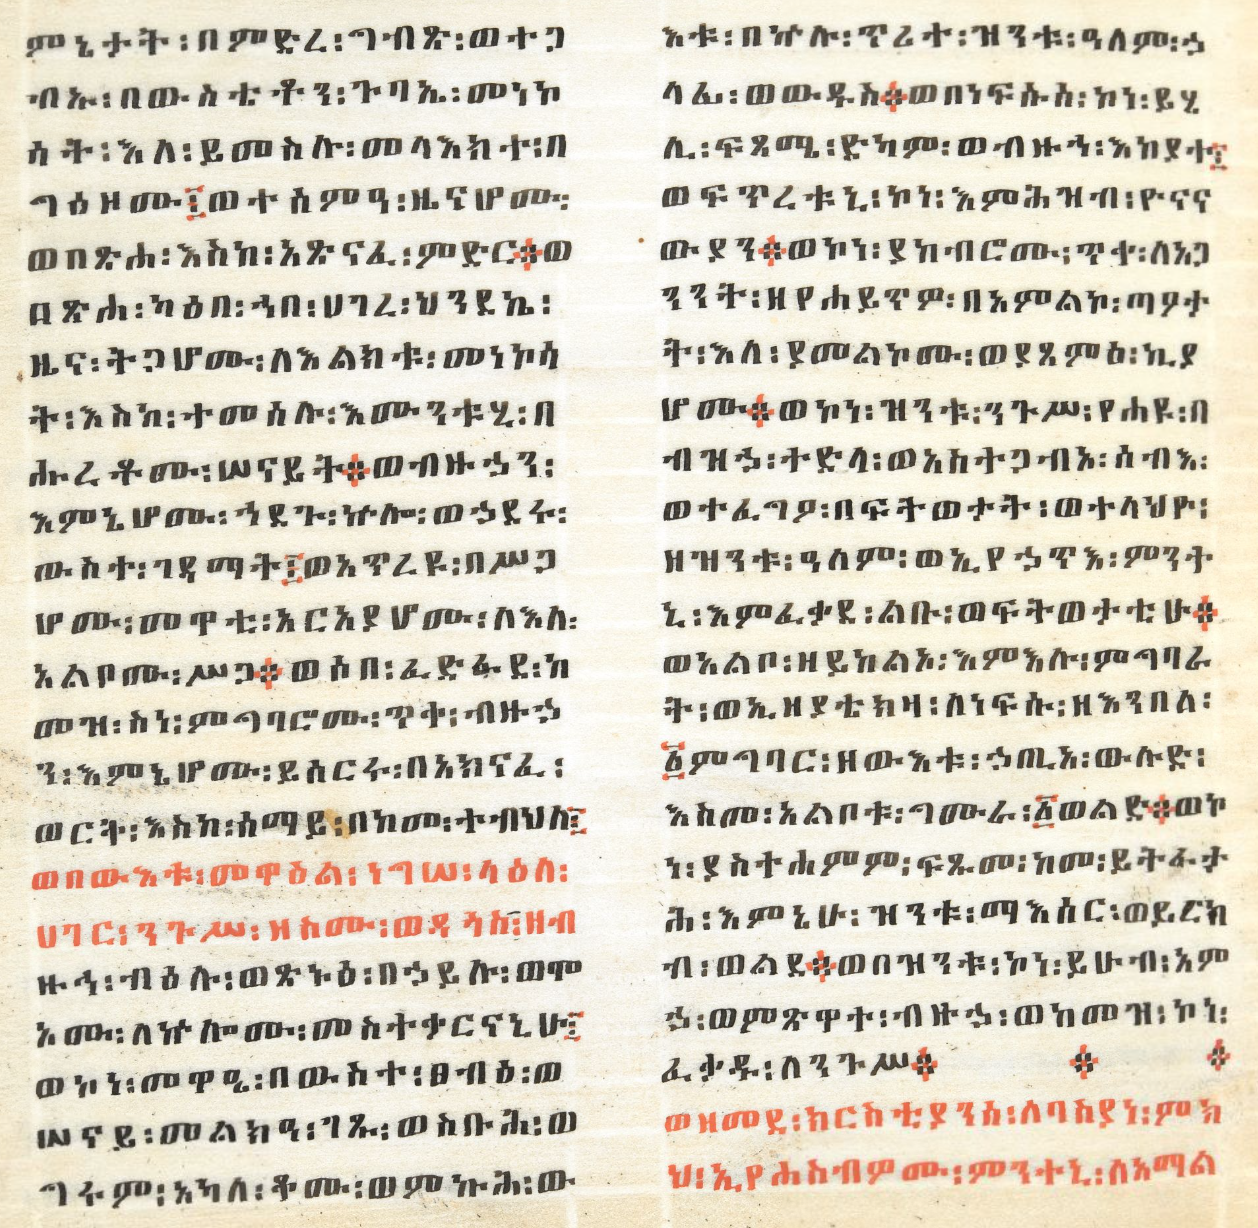 ምኔታት፡በምድረ፡ግብጽ፡ወተጋ
ብኡ፡በውስቴቶን፡ጉባኤ፡መነኮ
ሳት፡እለ፡ይመስሉ፡መላእክተ፡በ
ግዕዞሙ፤ወተሰምዓ፡ዜናሆሙ፡
ወበጽሐ፡እስከ፡አጽናፈ፡ምድር፨ወ
በጽሐ፡ካዕበ፡ኀበ፡ሀገረ፡ህንደኬ፡
ዜና፡ትጋሆሙ፡ለእልክቱ፡መነኮሳ
ት፡እስከ፡ተመሰሉ፡እሙንቱሂ፡በ
ሑረቶሙ፡ሠናይት፨ወብዙኃን፡
እምኔሆሙ፡ኀደጉ፡ኵሎ፡ወኃደሩ፡
ውስተ፡ገዳማት፤ወአጥረዩ፡በሥጋ
ሆሙ፡መዋቲ፡አርአያሆሙ፡ለእለ፡
አልቦሙ፡ሥጋ፨ወሶበ፡ፈድፋደ፡ከ
መዝ፡ሰነ፡ምግባሮሙ፡ጥቀ፡ብዙኃ
ን፡እምኔሆሙ፡ይሰርሩ፡በአክናፈ፡
ወርቅ፡እስከ፡ሰማይ፡በከመ፡ተብህለ፤
ወበውእቱ፡መዋዕል፡ነግሠ፡ላዕለ፡
ሀገር፡ንጉሥ፡ዝስሙ፡ወዳጎስ፤ዘብ
ዙኅ፡ብዕሉ፡ወጽኑዕ፡በኃይሉ፡ወሞ
አሙ፡ለኵሎሙ፡መስተቃርናኒሁ፤
ወኮነ፡መዋዒ፡በውስተ፡ፀብዕ፡ወ
ሠናይ፡መልክዓ፡ገጹ፡ወስቡሕ፡ወ
ግሩም፡አካለ፡ቆሙ፡ወምኩሕ፡ው
እቱ፡በኵሉ፡ጥሪተ፡ዝንቱ፡ዓለም፡ኃ
ላፊ፡ወውዱስ፨ወበነፍሱሰ፡ኮነ፡ይሂ
ሊ፡ፍጻሜ፡ድካም፡ወብዙኅ፡እከያተ፤
ወፍጥረቱኒ፡ኮነ፡እምሕዝብ፡ዮናና
ውያን፨ወኮነ፡ያከብሮሙ፡ጥቀ፡ለአጋ
ንንት፡ዘየሐይጥዎ፡በአምልኮ፡ጣዖታ
ት፡እለ፡ያመልኮሙ፡ወያጸምዕ፡ኪያ
ሆሙ፨ወኮነ፡ዝንቱ፡ንጉሥ፡የሐዩ፡በ
ብዝኃ፡ተድላ፡ወአስተጋብአ፡ሰብእ፡
ወተፈግዖ፡በፍትወታት፡ወተላህዮ፡
ዘዝንቱ፡ዓለም፡ወኢየኃጥእ፡ምንት
ኒ፡እምፈቃደ፡ልቡ፡ወፍትወታቲሁ፨
ወአልቦ፡ዘይከልኦ፡እምእሉ፡ምግባራ
ት፡ወኢዘያቲክዛ፡ለነፍሱ፡ዘእንበለ፡
፩ምግባር፡ዘውእቱ፡ኃጢአ፡ውሉድ፡
እስመ፡አልቦቱ፡ግሙራ፡፩ወልድ፨ወኮ
ነ፡ያስተሐምም፡ፍጹመ፡ከመ፡ይትፋታ
ሕ፡እምኔሁ፡ዝንቱ፡ማእሰር፡ወይርክ
ብ፡ወልደ፨ወበዝንቱ፡ኮነ፡ይሁብ፡አም
ኃ፡ወምጽዋተ፡ብዙኃ፡ወከመዝ፡ኮነ፡
ፈቃዱ፡ለንጉሥ፨ ፨ ፨
ወዘመደ፡ክርስቲያንሰ፡ለባስያነ፡ምክ
ህ፡ኢየሐስብዎሙ፡ምንተኒ፡ለአማል